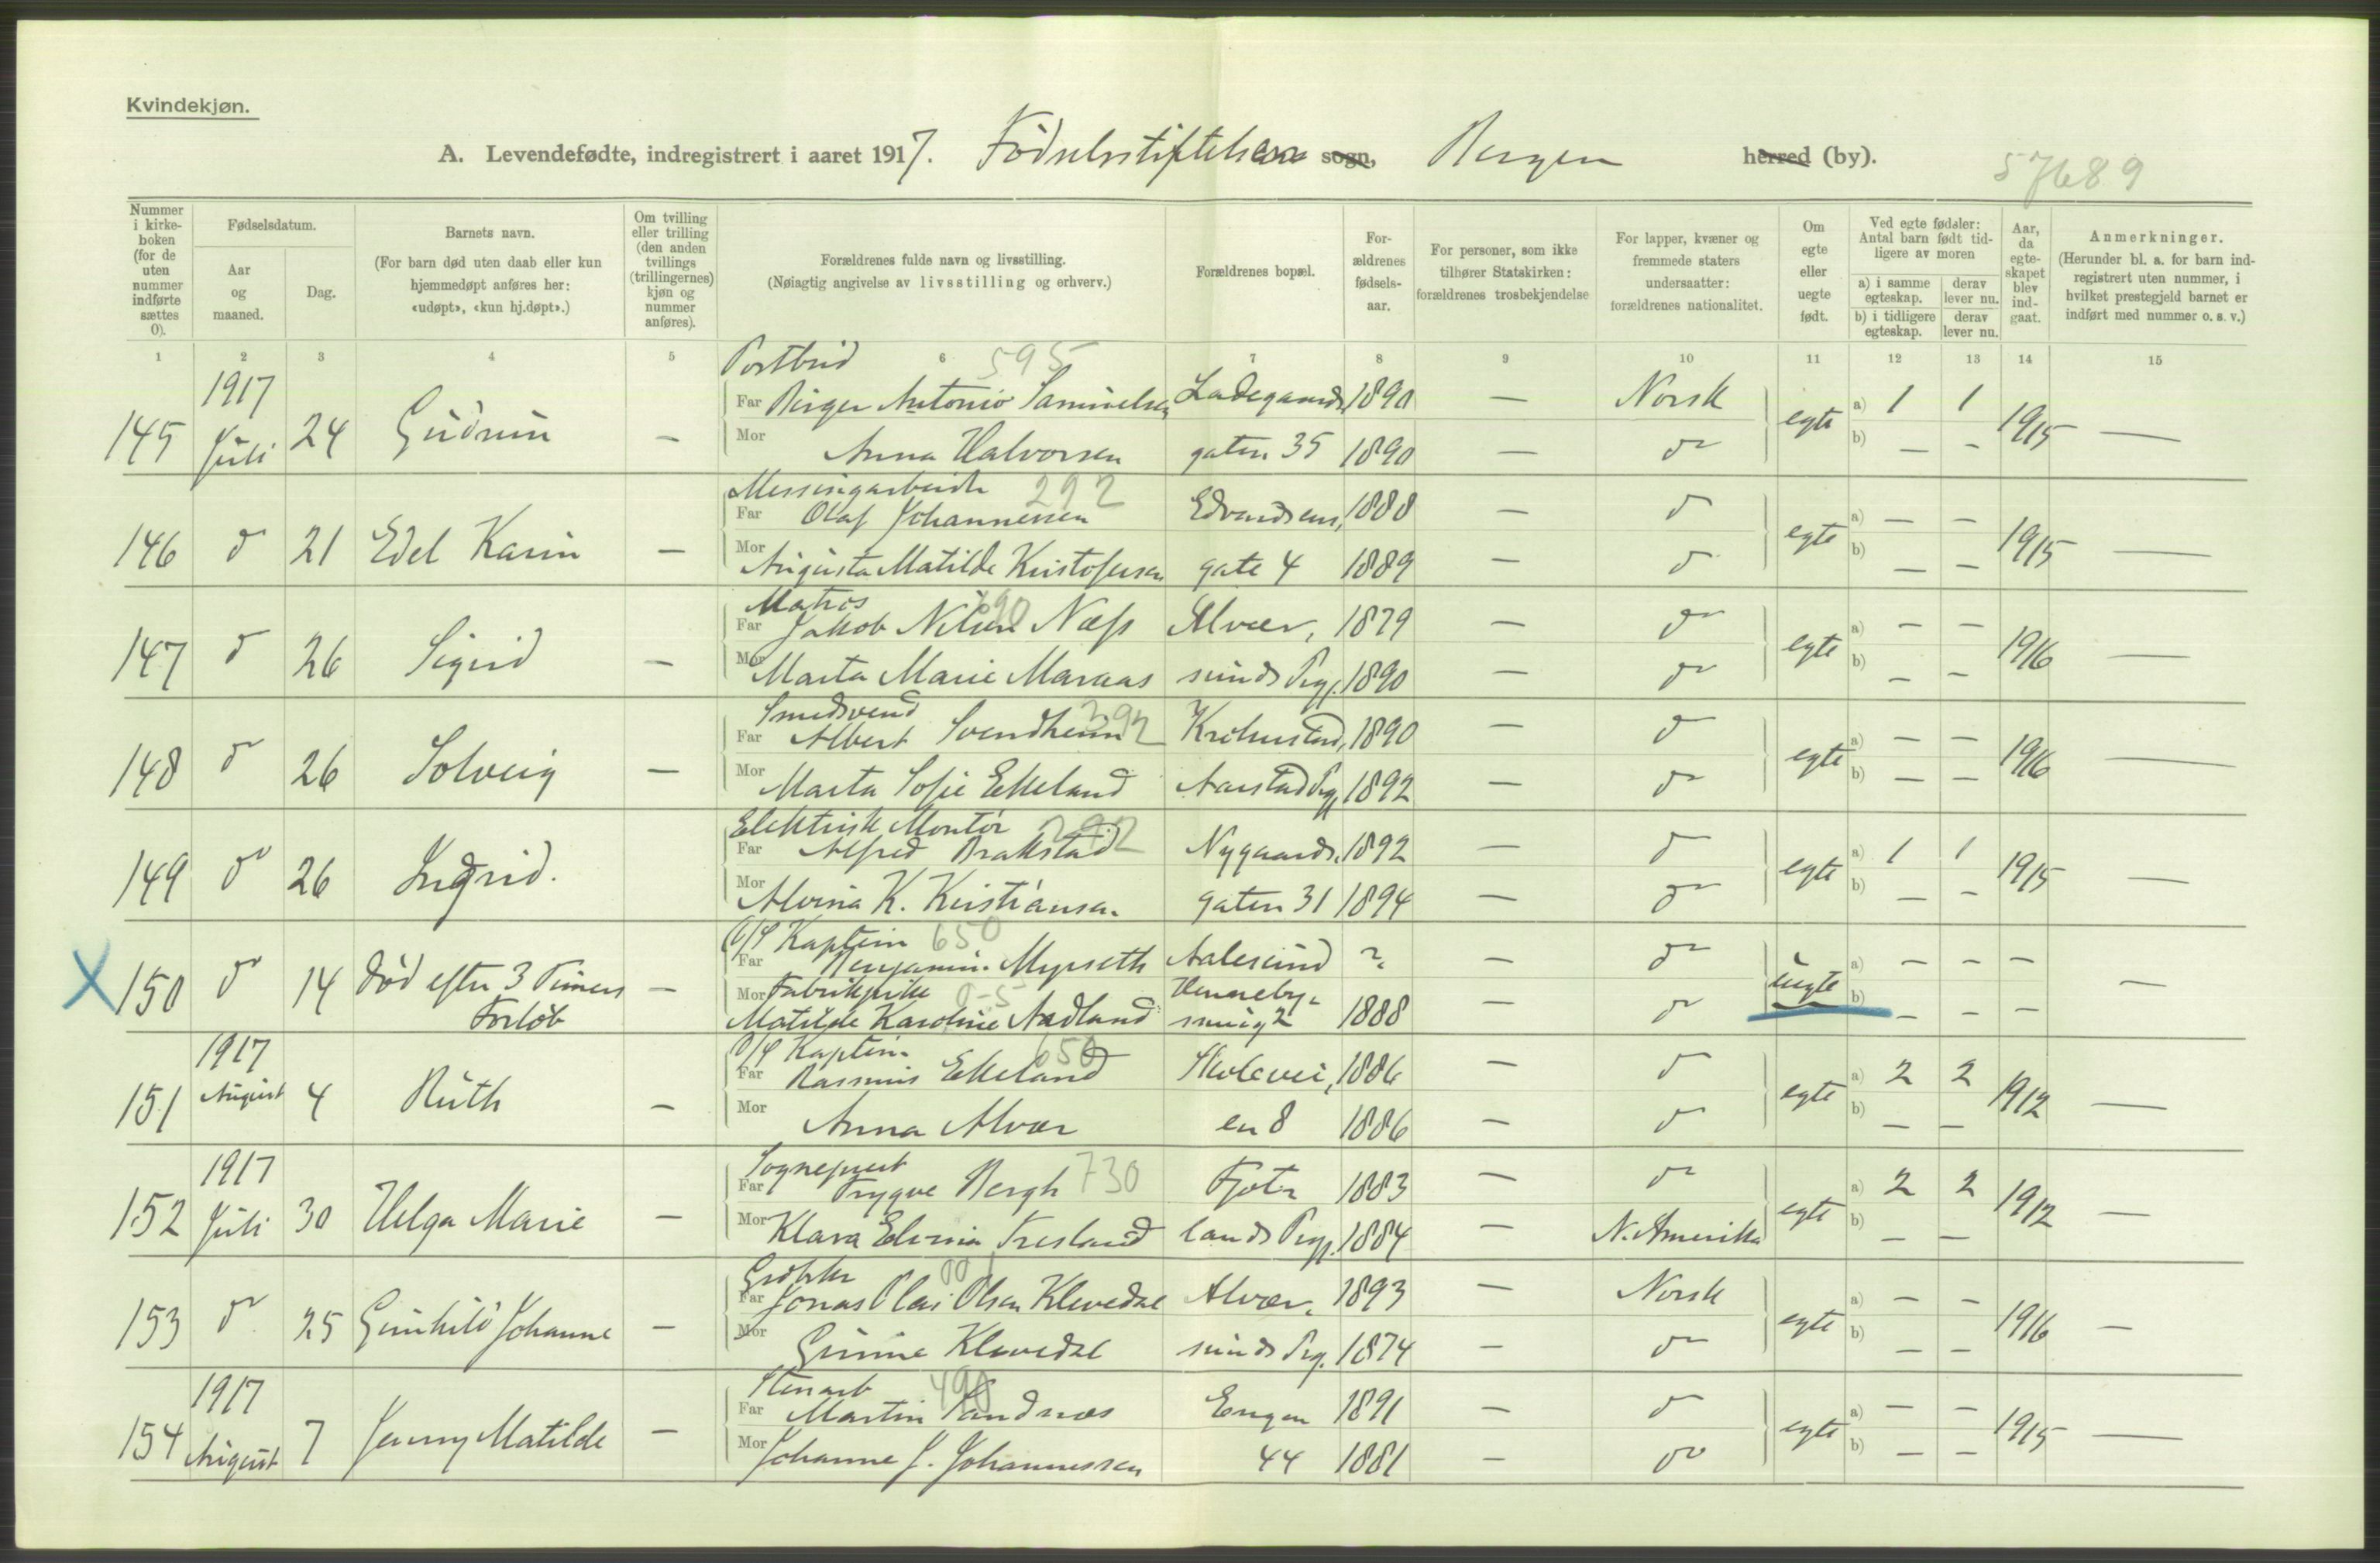 Kvindekjøn.
A. Levendefødte, indregistrert i aaret 1917. Fødselsstiftelsen sogn, Bergen herred (by).
57689
Nummer i kirkeboken (for de uten nummer indførte sættes 0).
Fødselsdatum.
Aar og maaned.
Dag.
Barnets navn.
(For barn død uten daab eller kun hjemmedøpt anføres her: «udøpt», «kun hj.døpt».)
Om tvilling eller trilling (den anden tvillings (trillingernes) kjøn og nummer anføres).
Forældrenes fulde navn og livsstilling.
(Nøiagtig angivelse av livsstilling og erhverv.)
Forældrenes bopæl.
Forældrenes fødselsaar.
For personer, som ikke tilhører Statskirken: forældrenes trosbekjendelse
For lapper, kvæner og fremmede staters undersaatter: forældrenes nationalitet.
Om egte eller uegte født.
Ved egte fødsler: Antal barn født tidligere av moren
a) i samme egteskap.
derav lever nu.
b) i tidligere egteskap.
derav lever nu.
Aar, da egteskapet blev indgaat.
Anmerkninger.
(Herunder bl. a. for barn indregistrert uten nummer, i hvilket prestegjeld barnet er indført med nummer o. s. v.)
1 2 3 4 5 6 7 8 9 10 11 12 13 14 15
Postbud 595
1917
Far Birger Antonio Samuelsen Ladegaards 1890 — Norsk a) 1 1
145 Juli 24 Gudrun — egte 1915 —
Mor Anna Halvorsen gaten 35 1890 — do b) — —
Messingarbeider 292
Far Olaf Johannessen Edvardsens 1888 — do a) — —
146 do 21 Edel Karin — egte 1915 —
Mor Augusta Matilde Kristofersen gate 4 1889 — do b) — —
Matros 690
Far Jakob Nilsen Næss Alver, 1879 — do a) — —
147 do 26 Sigrid — egte 1916 —
Mor Marta Marie Maraas sunds Prgj. 1890 — do b) — —
Smedsvend 292
Far Albert Svendheim Krohnstad, 1890 — do a) — —
148 do 26 Solveig — egte 1916 —
Mor Marta Sofie Ekeland Aarstad Prgj. 1892 — do b) — —
Elektrisk Montør 292
Far Alfred Brakstad Nygaards 1892 — do a) 1 1
149 do 26 Ingrid. egte 1915 —
Mor Alvina K. Kristiansen gaten 31 1894 — do b) — —
D/S Kaptein 650
Far Benjamin Myrseth Aalesund ? — do a) — — —
X 150 do 14 Død efter 3 Timers Forløb — uegte —
Mor Fabrikpike 0-5
Matilde Karoline Nedland Hennebysmug 2 1888 — do b) — — —
D/S Kaptein 650
1917
Far Rasmus Ekeland Skolevei, 1886 — do a) 2 2
151 August 4 Ruth — egte 1912 —
Mor Anna Alver en 8 1886 — do b) — —
Sogneprest 730
1917
Far Trygve Bergh Fjot 1883 — do a) 2 2
152 Juli 30 Helga Marie — egte 1912 —
Mor Klara Elvina lands Prgj. 1884 — N. Amerika b) — —
Far Jonas Olai Olsen Klevedal Alver, 1893 — Norsk a) — —
153 do 25 Gunhild Johanne — egte 1916 —
Mor Gurine Klevedal sunds Prgj. 1874 — do b) — —
Stenarb 490
1917
Far Martin Sandnæs Engen 1891 — do a) — —
154 August 7 Jenny Matilde — egte 1915 —
Mor Johanne J. Johannessen 44 1881 — do b) — —